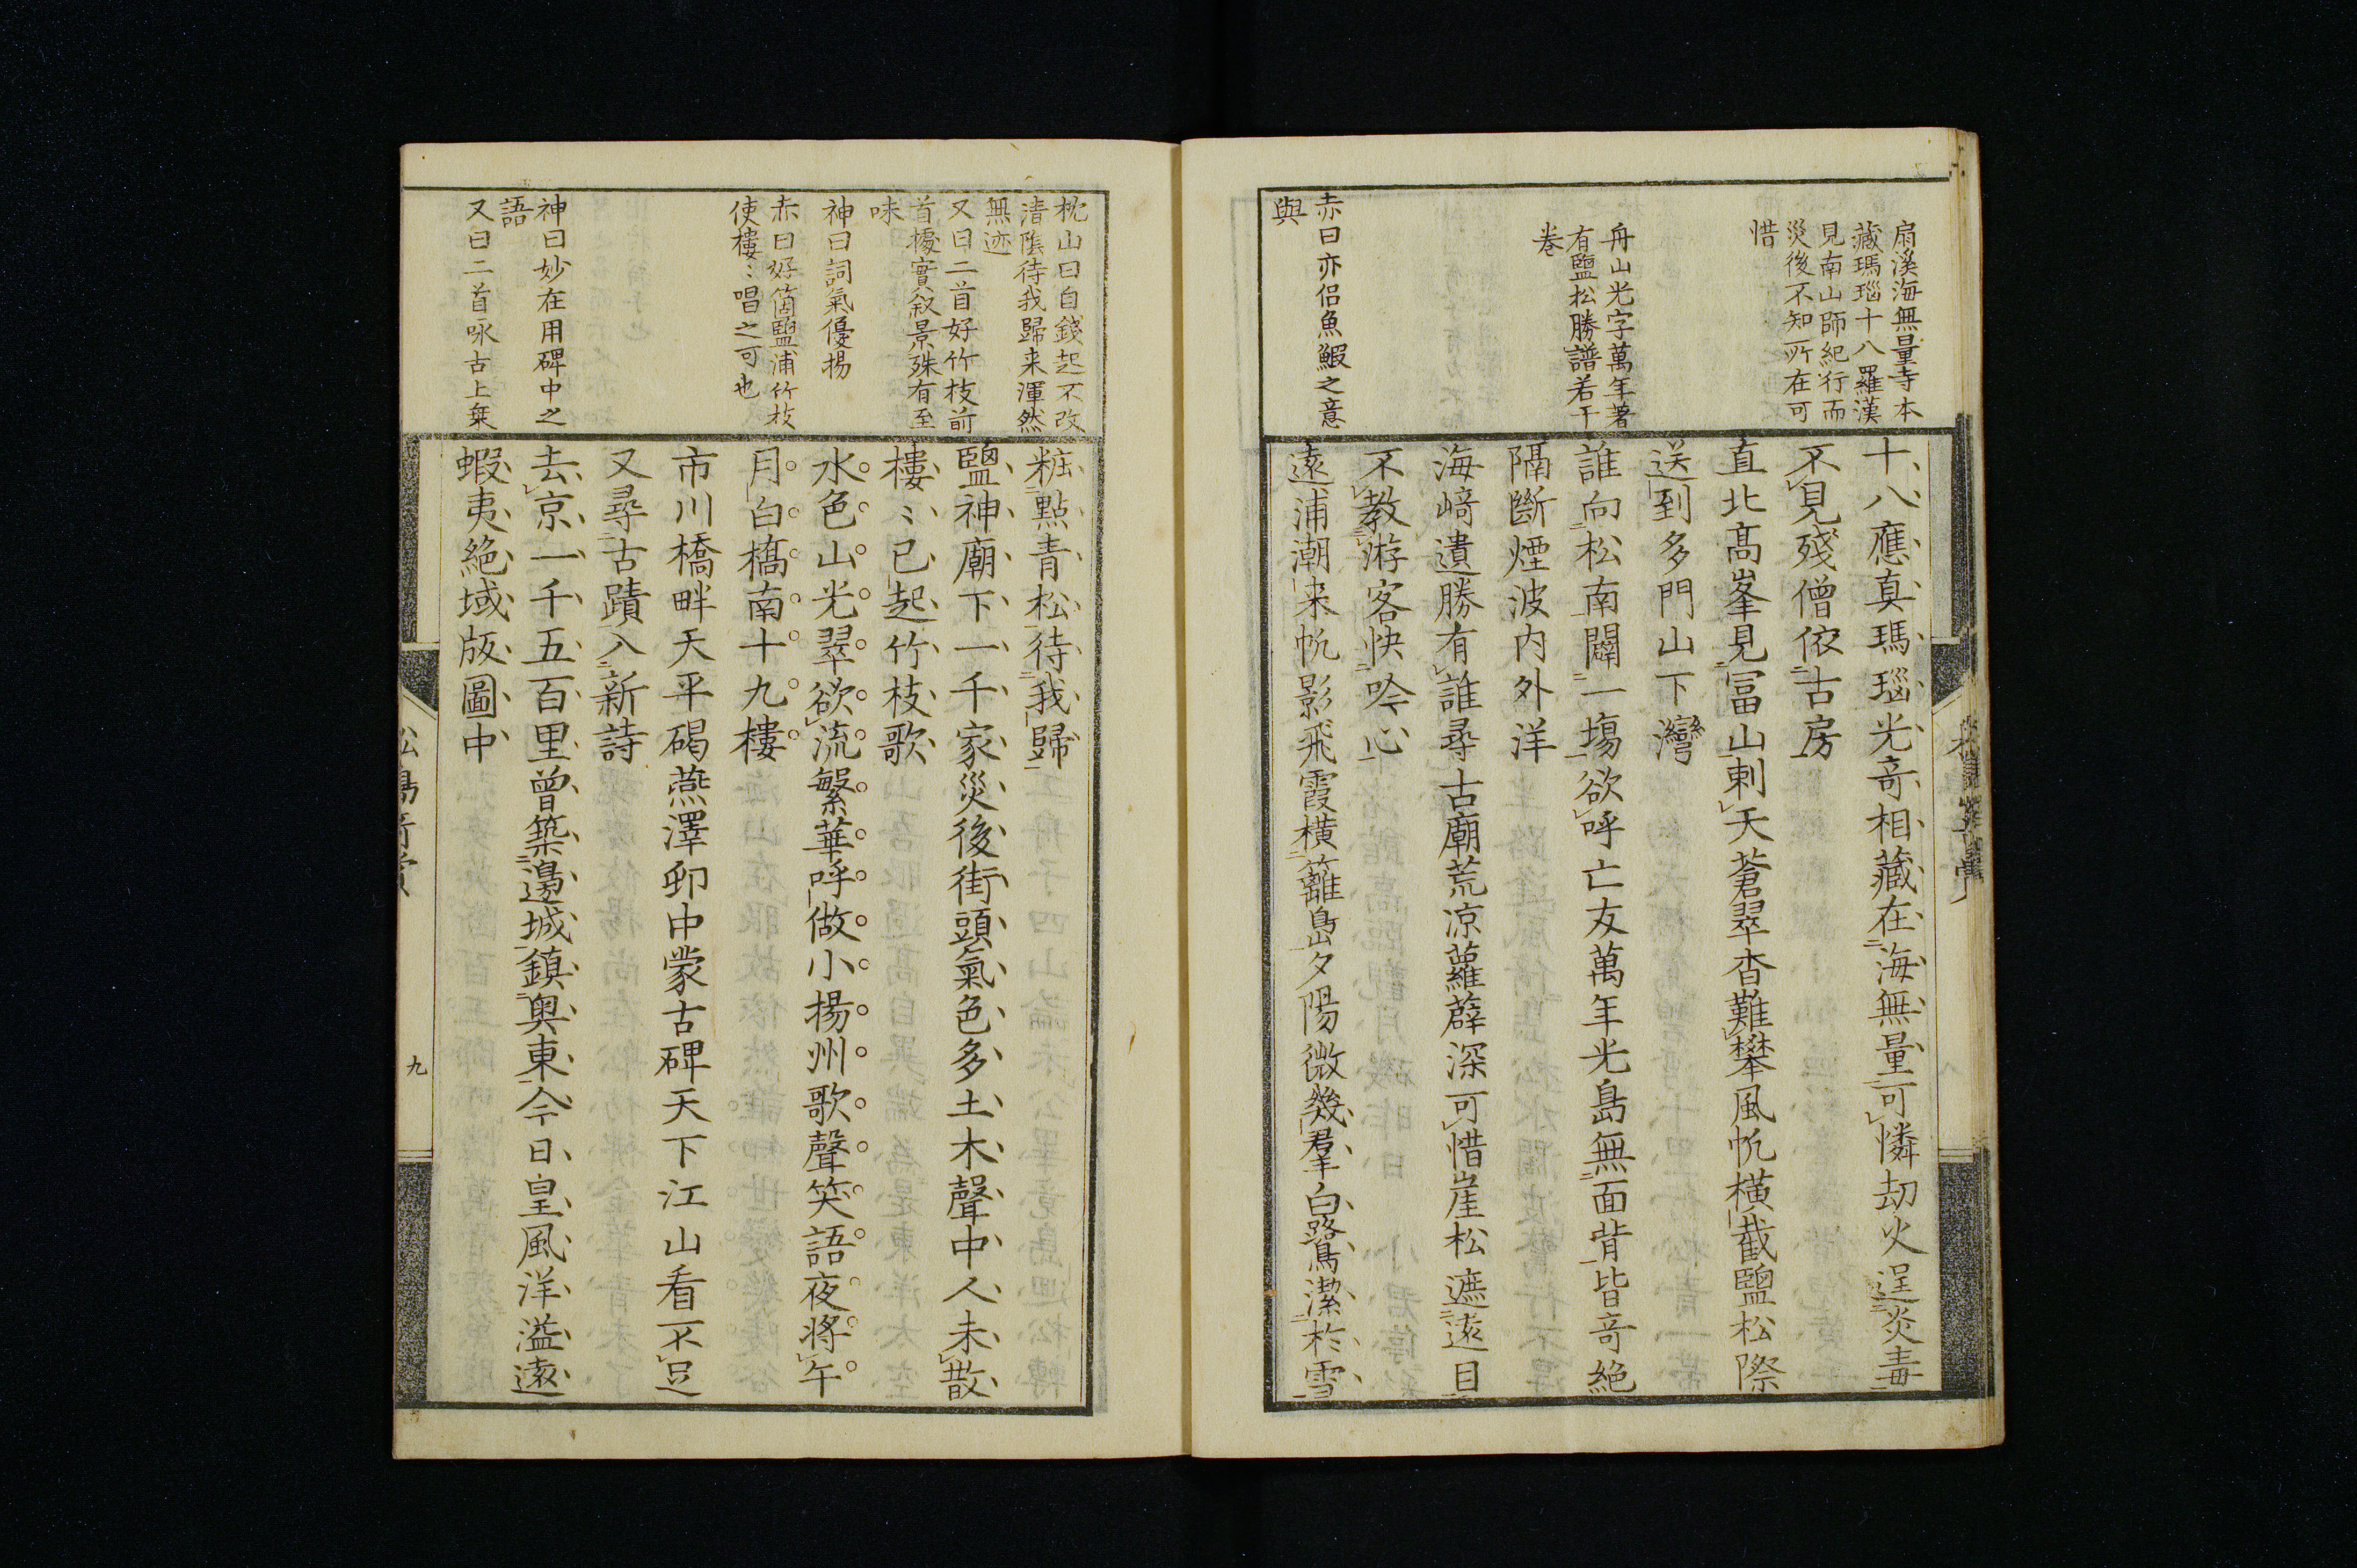 扇溪海無量寺本
藏瑪瑙十八羅漢
見南山師紀行而
災後不知所在可
惜
舟山光字萬年著
有鹽松勝譜若干
卷
赤曰亦侶魚鰕之意
與
十八應真瑪瑙光奇相藏在海無量可憐劫火逞炎毒
不見殘僧依古房
直北高峯見冨山刺天蒼翠杳難攀風帆橫截鹽松際
送到多門山下灣
誰向松南闢一場欲呼亡友萬年光島無面背皆奇絕
隔斷煙波內外洋
海﨑遺勝有誰尋古廟荒凉蘿薜深可惜崖松遮遠目
不教游客快吟心
遠浦潮来帆影飛霞橫籬島夕陽微幾羣白鷺潔於雪
枕山曰自錢起不改
清陰待我歸来渾然
無迹
又曰二首好竹枝前
首據實叙景殊有至
味
神曰詞氣優揚
赤曰好箇鹽浦竹枝
使樓〻唱之可也
神曰妙在用碑中之
語
又曰二首咏古上乗
粧點青松待我歸
鹽神廟下一千家災後街頭氣色多土木聲中人未散
樓〻已起竹枝歌
水色山光翠欲流繁華呼做小揚州歌聲笑語夜將午
月白橋南十九樓
市川橋畔天平碣燕澤卵中蒙古碑天下江山看不足
又尋古蹟入新詩
去京一千五百里曾築邊城鎮奥東今日皇風洋溢遠
蝦夷絕域版圖中
九